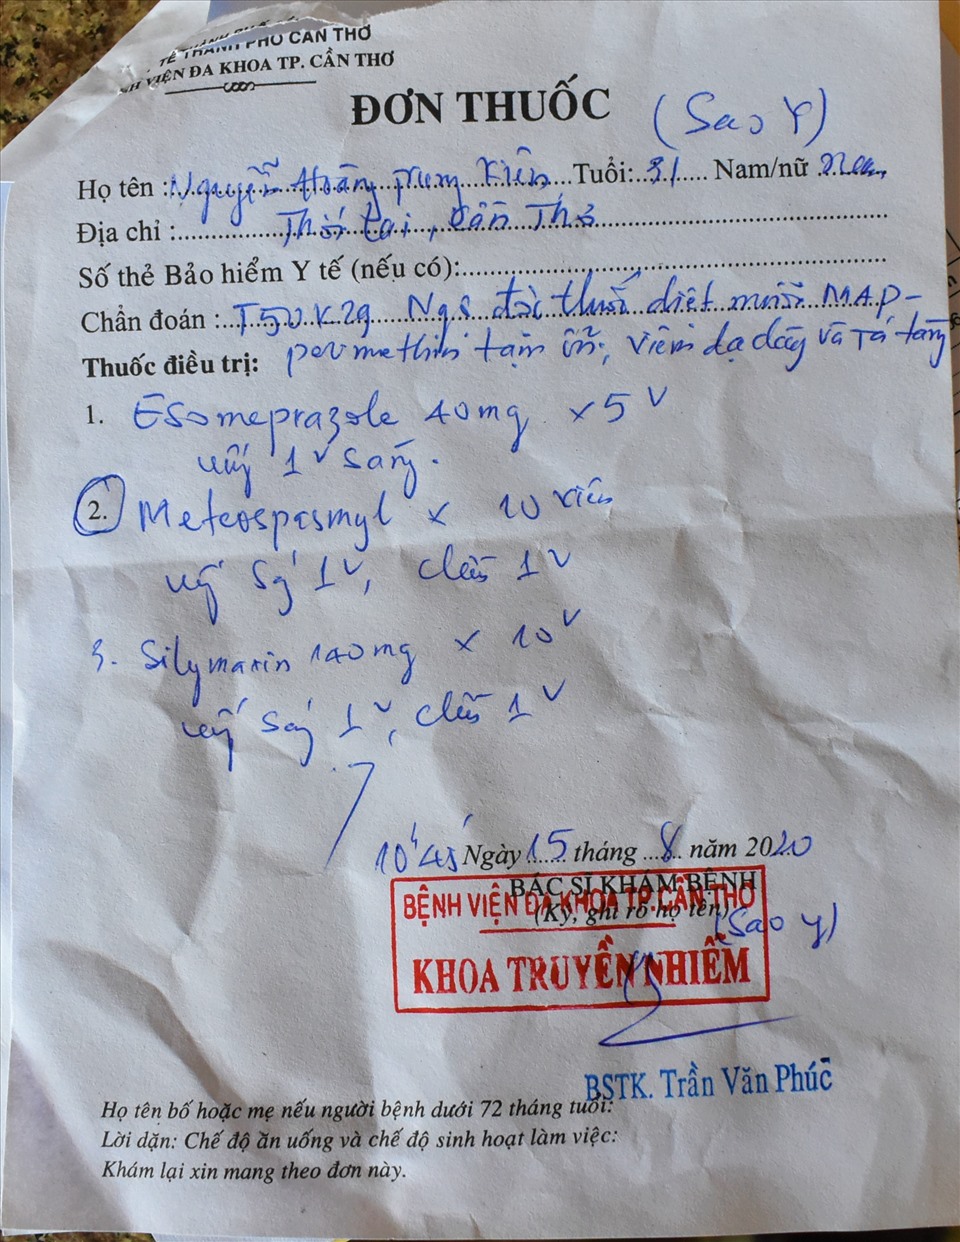 TẾ THÀNH PHỐ CẦN THƠ
VIỆN ĐA KHOA TP. CẦN THƠ
ĐƠN THUỐC (Sao Y)
Họ tên : Nguyễn Hoàng Kiên Tuổi: 31 Nam/nữ Nam
Địa chỉ : Thới Lai, Cần Thơ
Số thẻ Bảo hiểm Y tế (nếu có):
Chẩn đoán : diệt muỗi MAP-
Thuốc điều trị: permethrin viêm dạ dày và Tá tràng
1. Esomeprazole 40mg x 5 v
uống 1 v sáng.
2. Meteospasmyl x 10 viên
uống Sg 1 v, chiều 1 v
3. Silymarin 140mg x 10 v
uống Sg 1 v, chiều 1 v
10h45' Ngày 15 tháng 8 năm 2020
BÁC SĨ KHÁM BỆNH
(Ký, ghi rõ họ tên)
BỆNH VIỆN ĐA KHOA TP.CẦN THƠ
(Sao y)
KHOA TRUYỀN NHIỄM
BSTK. Trần Văn Phúc
Họ tên bố hoặc mẹ nếu người bệnh dưới 72 tháng tuổi:
Lời dặn: Chế độ ăn uống và chế độ sinh hoạt làm việc:
Khám lại xin mang theo đơn này.